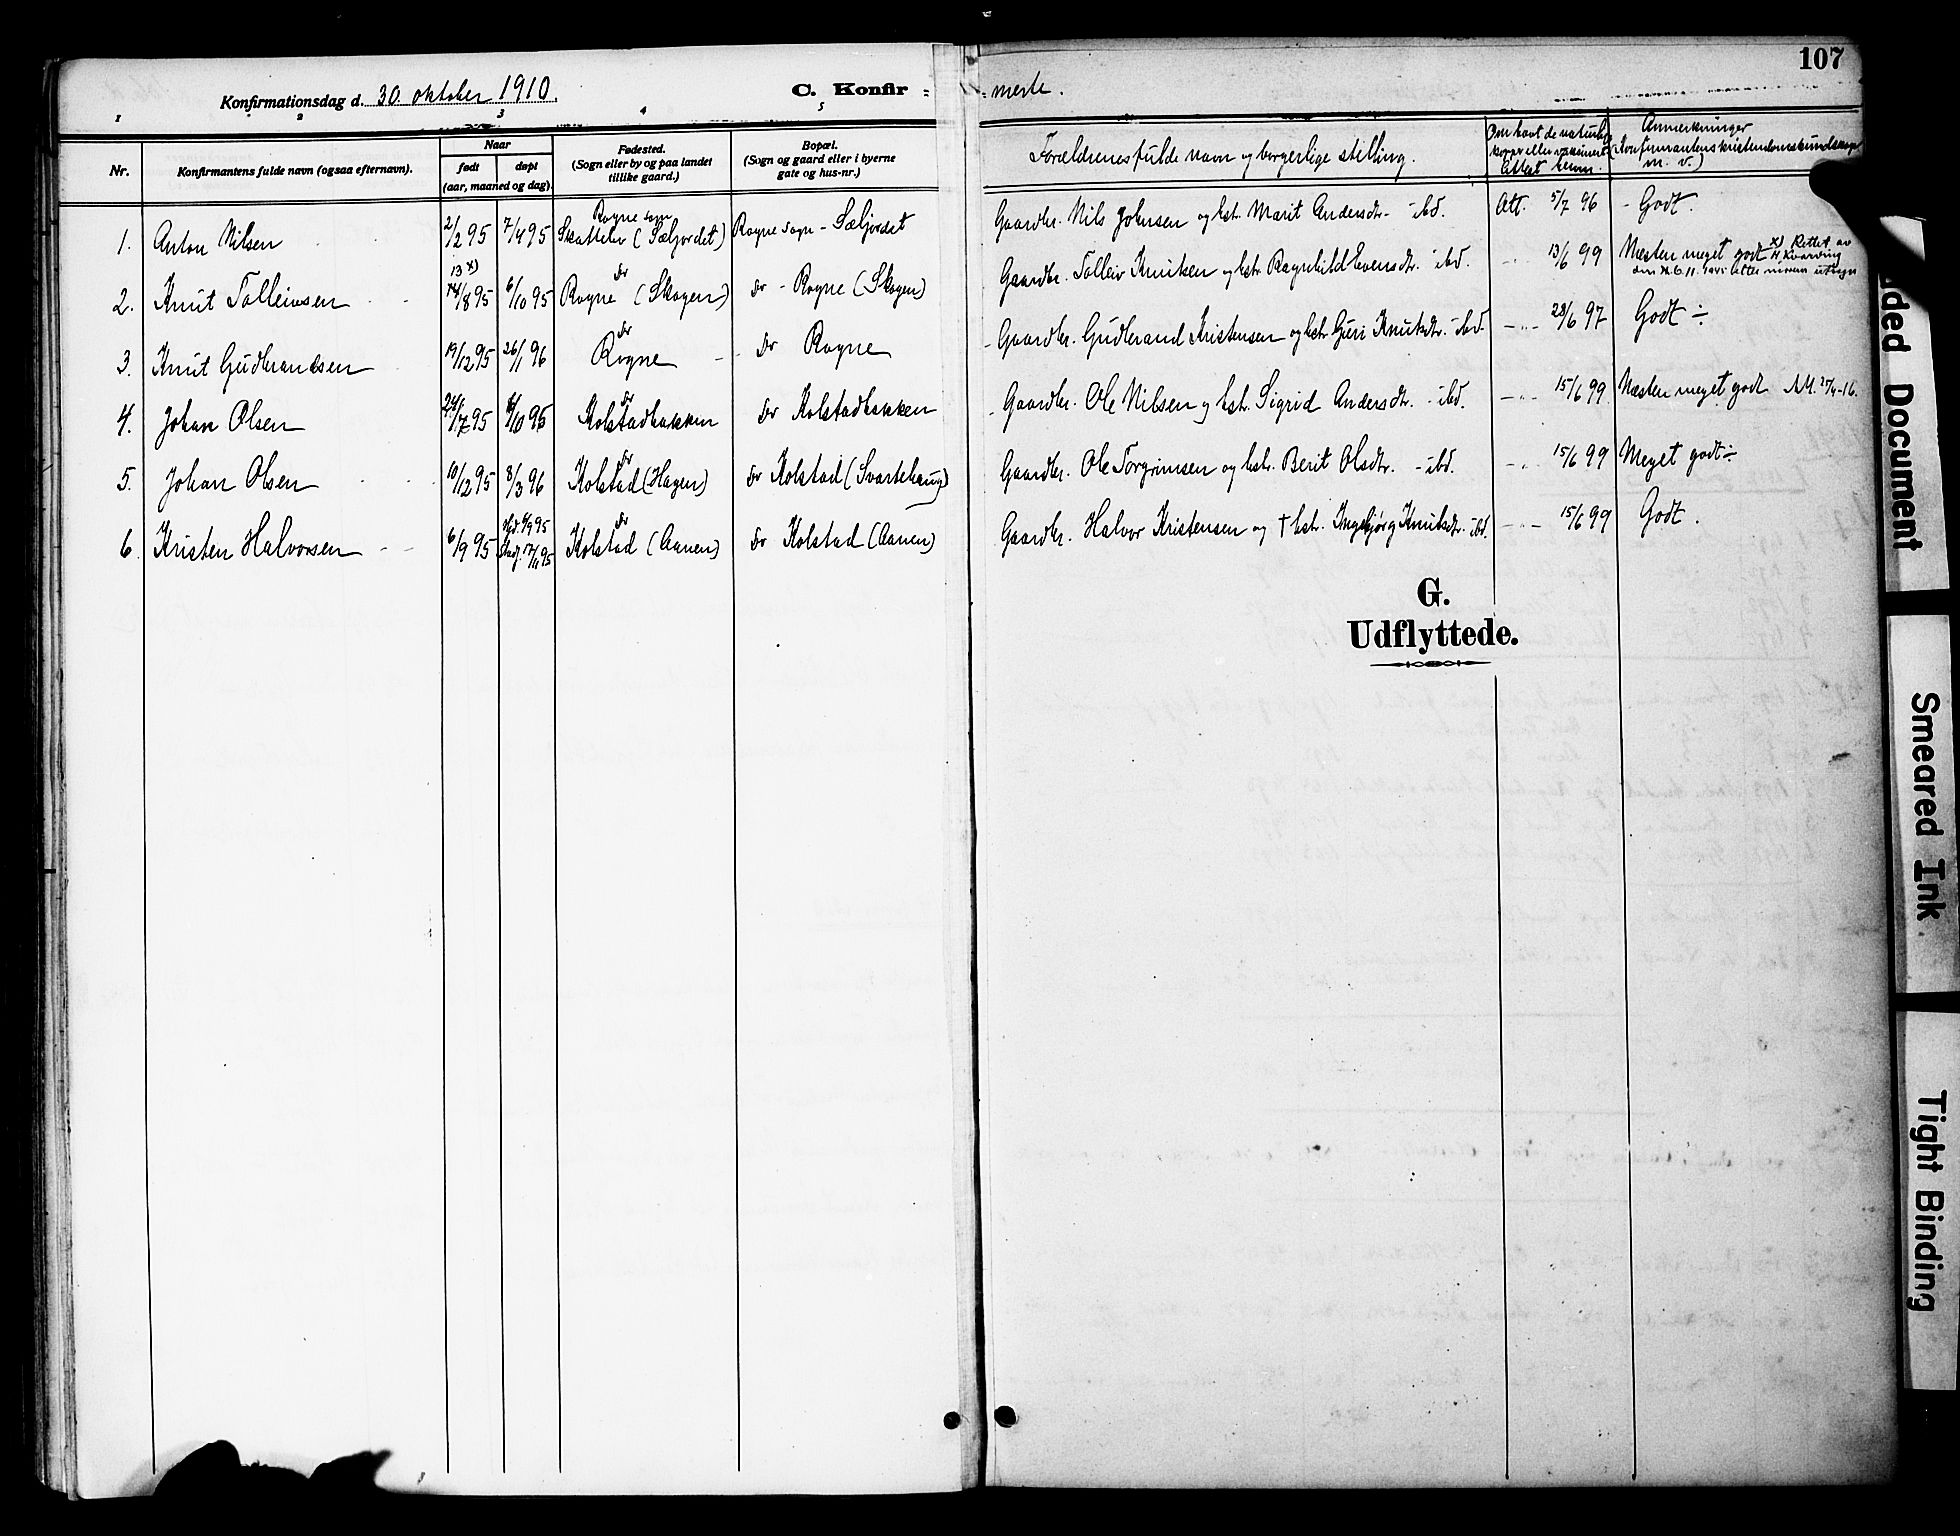 107
Konfirmationsdag d. 30. oktober 1910. C. Konfir = = merte.
1 2 3 4 5
Nr. Konfirmantens fulde navn (ogsaa efternavn). Naar født døpt (aar, maaned og dag). Fødested. (Sogn eller by og paa landet tillike gaard.) Bopæl. (Sogn og gaard eller i byerne gate og hus-nr.) Forældrenes fulde navn og borgerlige stilling. Om havt de naturlige kopper eller vaksinert. Attest Anmerkninger (Konfirmantens kristendomskundskap m. v.)
1. Anton Nilsen 2/2 95 7/4 95 Rogne sogn Skattebu (Sæljordet) Rogne sogn - Sæljordet Gaardbr. Nils Johnsen og hstr. Marit Andersdtr. - ibd. Att. 5/7 96 - Godt.
2. Knut Tolleivsen 13 x) 14/8 95 6/10 95 do Rogne (Skogen) do - Rogne (Skogen) Gaardbr. Tolleiv Knutsen og hstr. Ragnhild Evensdtr. - ibd. -"- 13/6 99 Næsten meget godt x) Rettet av
3. Knut Gudbrandsen 19/12 95 26/1 96 do Rogne - do Rogne - Gaardbr. Gudbrand Kristensen og hstr. Guri Knutsdtr. - ibd. -"- 28/6 97 Godt ÷
4. Johan Olsen 7 95 10 95 do Kolstadbakken do Kolstadbakken - Gaardbr. Ole Nilsen og hstr. Sigrid Andersdtr. - ibd. -"- 15/6 99 Næsten meget godt
5. Johan Olsen 10/12 95 8/3 96 do Kolstad (Hagen) do Kolstad (Svartehaug) Gaardbr. Ole Torgrimsen og hstr. Berit Olsdtr. - ibd. -"- 15/6 99 Meget godt ÷
6. Kristen Halvorsen 6/9 95 Hjd. 6/9 95 Stadf. 17/11 95 do Kolstad (Aanen) do Kolstad (Aanen) Gaardbr. Halvor Kristensen og † hstr. Ingebjørg Knutsdtr. - ibd. -"- 15/6 99 Godt.
G.
Udflyttede.
ded Document
Smeared Ink
Tight Binding